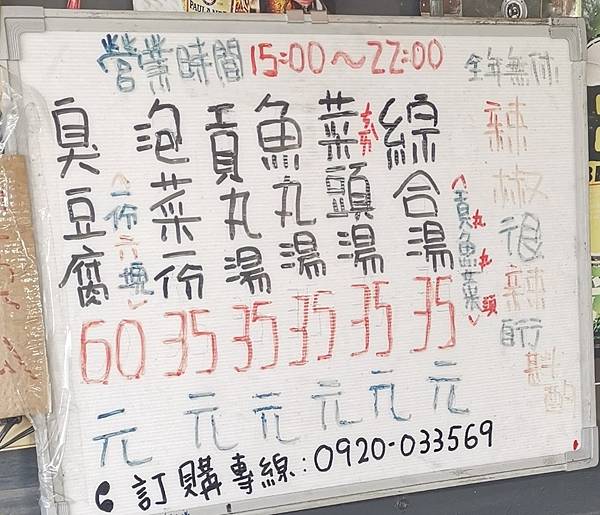 營業時間 15:00～22:00 全年無休
臭豆腐
〈一份六塊〉
60元
泡菜一份
35元
貢丸湯
35元
魚丸湯
35元
菜頭湯
35元
綜合湯
〈貢丸魚丸菜頭〉
35元
辣椒很辣
自行斟酌
訂購專線:0920-033569